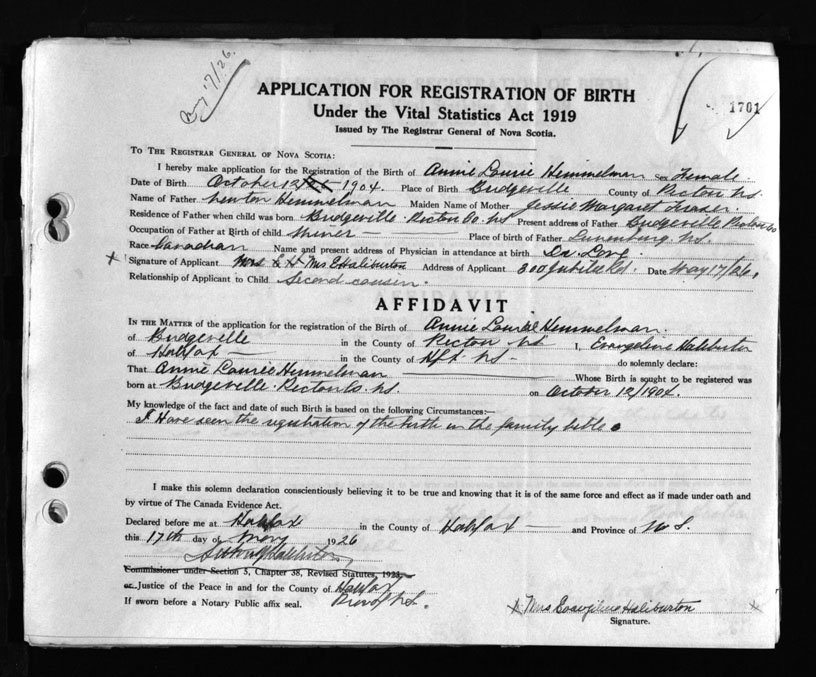 17/26.
1701
APPLICATION FOR REGISTRATION OF BIRTH
Under the Vital Statistics Act 1919
Issued by The Registrar General of Nova Scotia.
TO THE REGISTRAR GENERAL OF NOVA SCOTIA:
I hereby make application for the Registration of the Birth of Annie Laurie Hemmelman Sex Female.
Date of Birth October 12 1904. Place of Birth Bridgeville County of Pictou NS.
Name of Father Hemmelman Maiden Name of Mother Jessie Margaret Fraser.
Residence of Father when child was born Bridgeville Pictou Co. NS Present address of Father Bridgeville Pictou Co
Occupation of Father at Birth of child Miner Place of Birth of Father Lunenburg, NS.
Race Canadian Name and present address of Physician in attendance at birth Dr Love
x Signature of Applicant Mrs E Haliburton Address of Applicant 300 Jubilee Rd. Date May 17/26.
Relationship of Applicant to Child Second cousin.
AFFIDAVIT
IN THE MATTER of the application for the registration of the Birth of Annie Laurie Hemmelman.
of Bridgeville in the County of Pictou NS I, Evangeline Haliburton
of Halifax in the County of Hfx NS do solemnly declare:
That Annie Laurie Hemmelman Whose Birth is sought to be registered was
born at Bridgeville Pictou Co. NS. on October 12/1904.
My knowledge of the fact and date of such Birth is based on the following Circumstances:—
I Have seen the registration of the birth in the family bible.
I make this solemn declaration conscientiously believing it to be true and knowing that it is of the same force and effect as if made under oath and
by virtue of The Canada Evidence Act.
Declared before me at Halifax in the County of Halifax and Province of N S.
this 17th day of May 1926
Commissioner under Section 5, Chapter 38, Revised Statutes, 1923
or Justice of the Peace in and for the County of Halifax
Prov of N.S.
If sworn before a Notary Public affix seal.
x Mrs Evangeline Haliburton x
Signature.